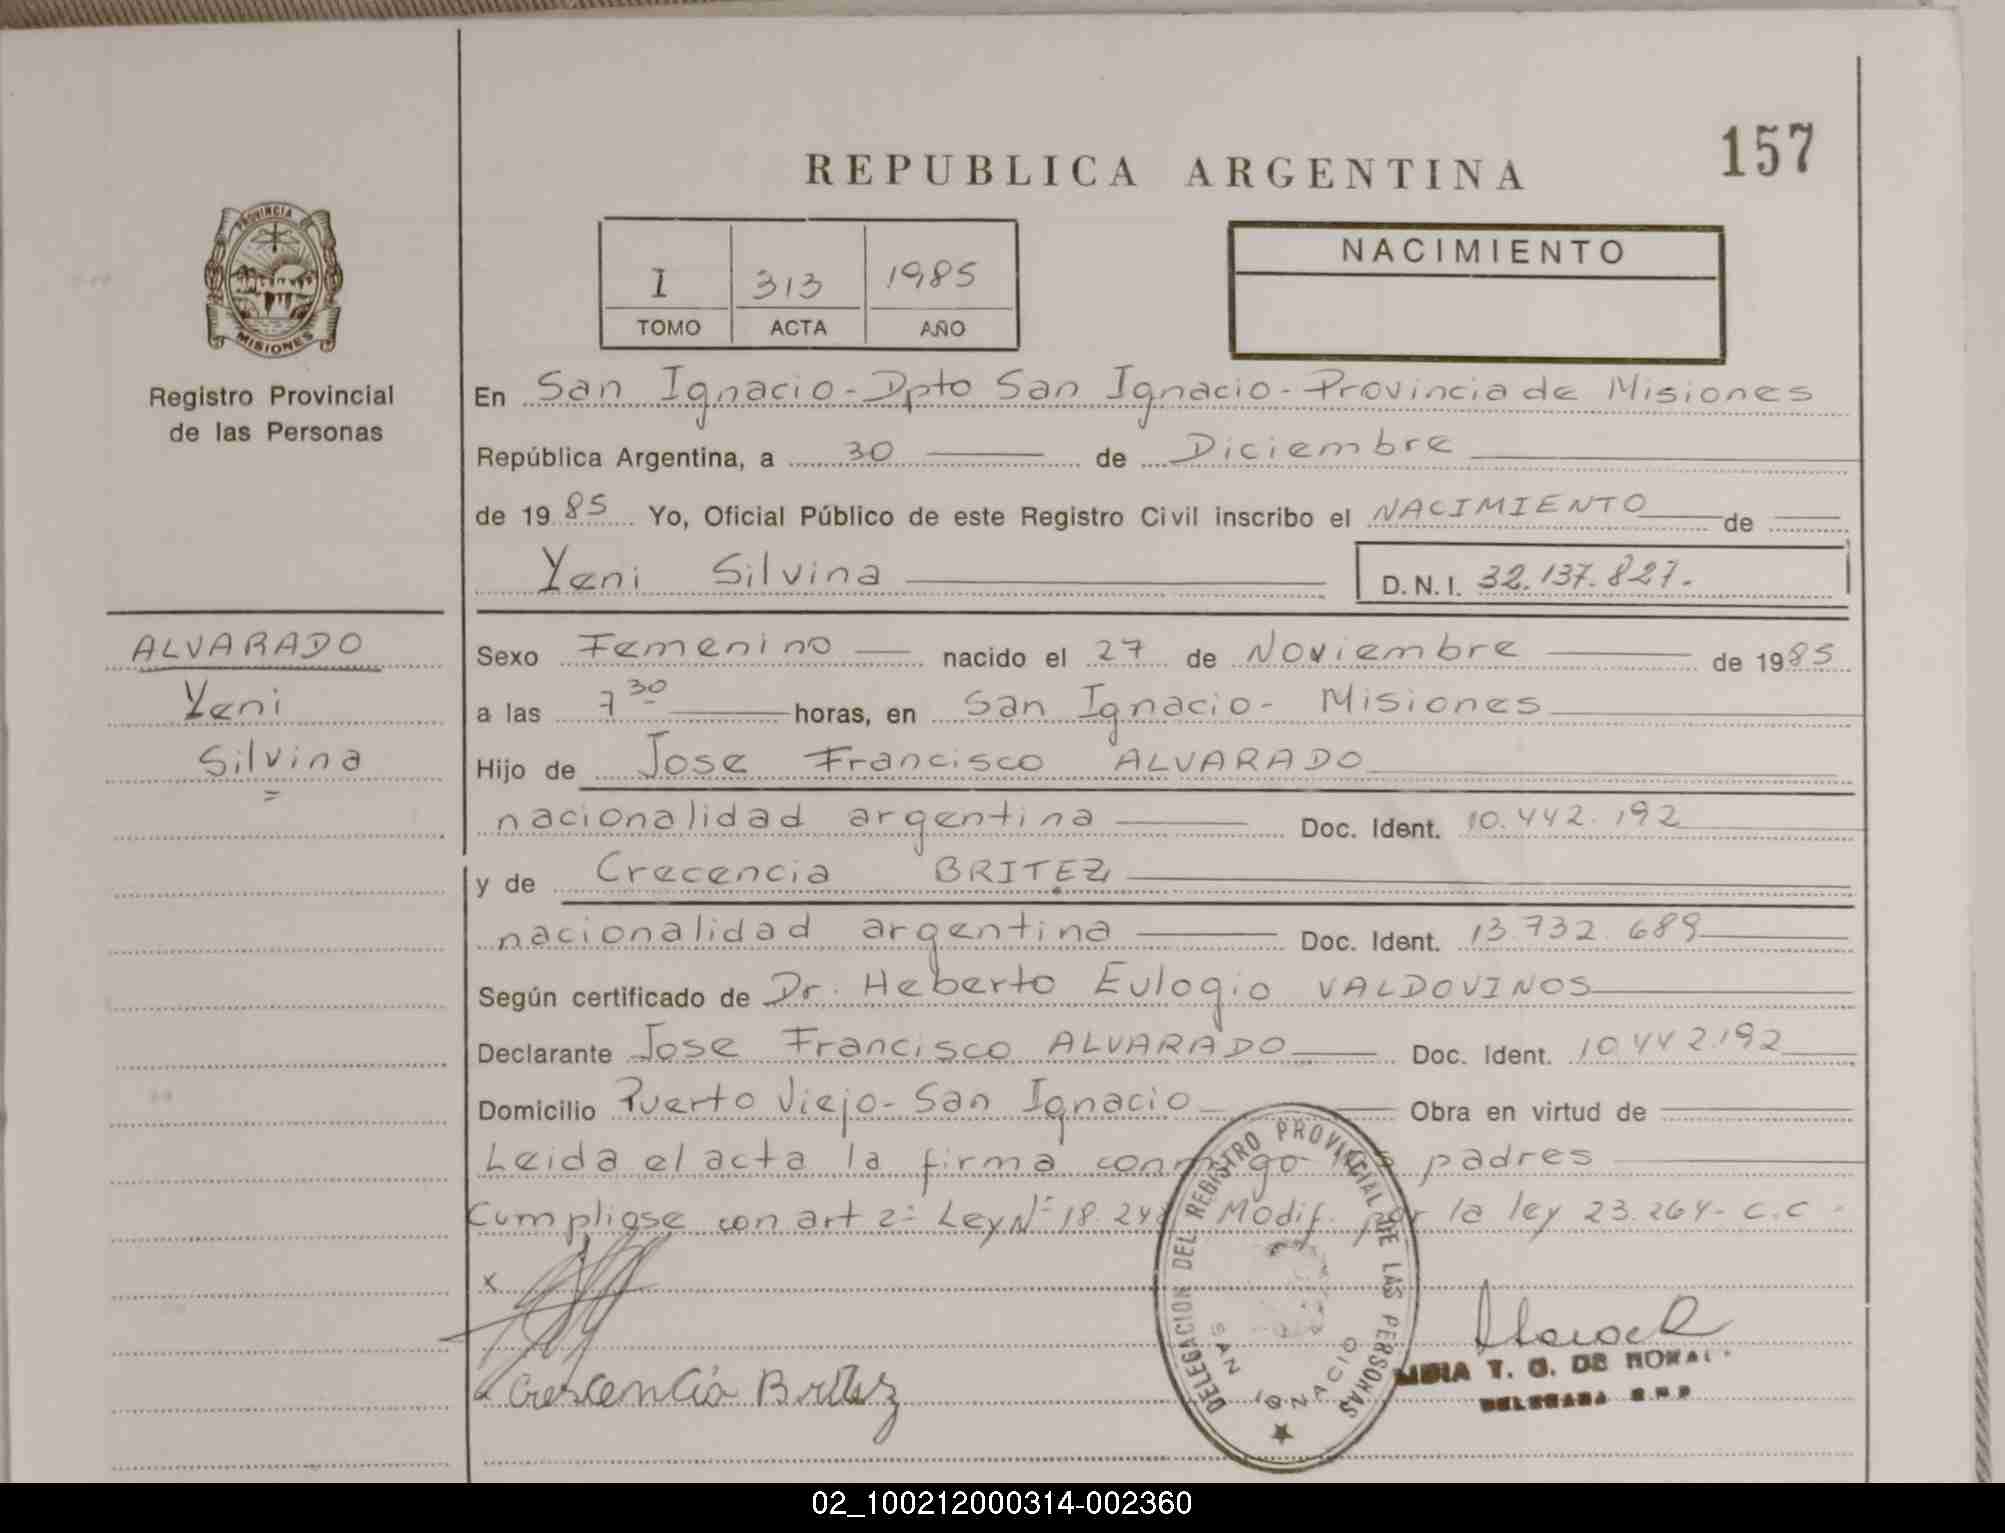 157
REPUBLICA ARGENTINA
PROVINCIA
MISIONES
Registro Provincial
de las Personas
I 313 1985
TOMO ACTA AÑO
NACIMIENTO
En San Ignacio - Dpto San Ignacio - Provincia de Misiones
República Argentina, a 30 de Diciembre
de 1985 Yo, Oficial Público de este Registro Civil inscribo el NACIMIENTO de
Yeni Silvina D.N.I. 32.137.827.
ALVARADO
Yeni
Silvina
Sexo Femenino nacido el 27 de Noviembre de 1985
a las 7 30 horas, en San Ignacio - Misiones
Hijo de Jose Francisco ALVARADO
nacionalidad argentina Doc. Ident. 10.442.192
y de Crecencia BRITEZ
nacionalidad argentina Doc. Ident. 13.732.689
Según certificado de Dr. Heberto Eulogio VALDOVINOS
Declarante Jose Francisco ALVARADO Doc. Ident. 10.442.192
Domicilio Puerto Viejo - San Ignacio Obra en virtud de
Leida el acta la firma conmigo los padres
Cumpliose con art 2º Ley Nº 18.248 Modif. por la ley 23.264 - C.C -
x
Crescencia Britez
DELEGACION DEL REGISTRO PROVINCIAL DE LAS PERSONAS
SAN IGNACIO
T. G. DE
DELEGADA
02_100212000314-002360